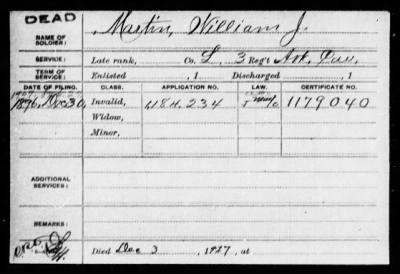 DEAD
NAME OF SOLDIER: Martin, William J.
SERVICE: Late rank, Co. L, 3 Reg't Ark. Cav.
TERM OF SERVICE: Enlisted , 1 Discharged , 1
DATE OF FILING. CLASS. APPLICATION NO. LAW. CERTIFICATE NO.
1896, Dec 30, Invalid, 1184,234 1179040
Widow,
Minor,
ADDITIONAL SERVICES:
REMARKS:
Died Dec 3, 1927, at